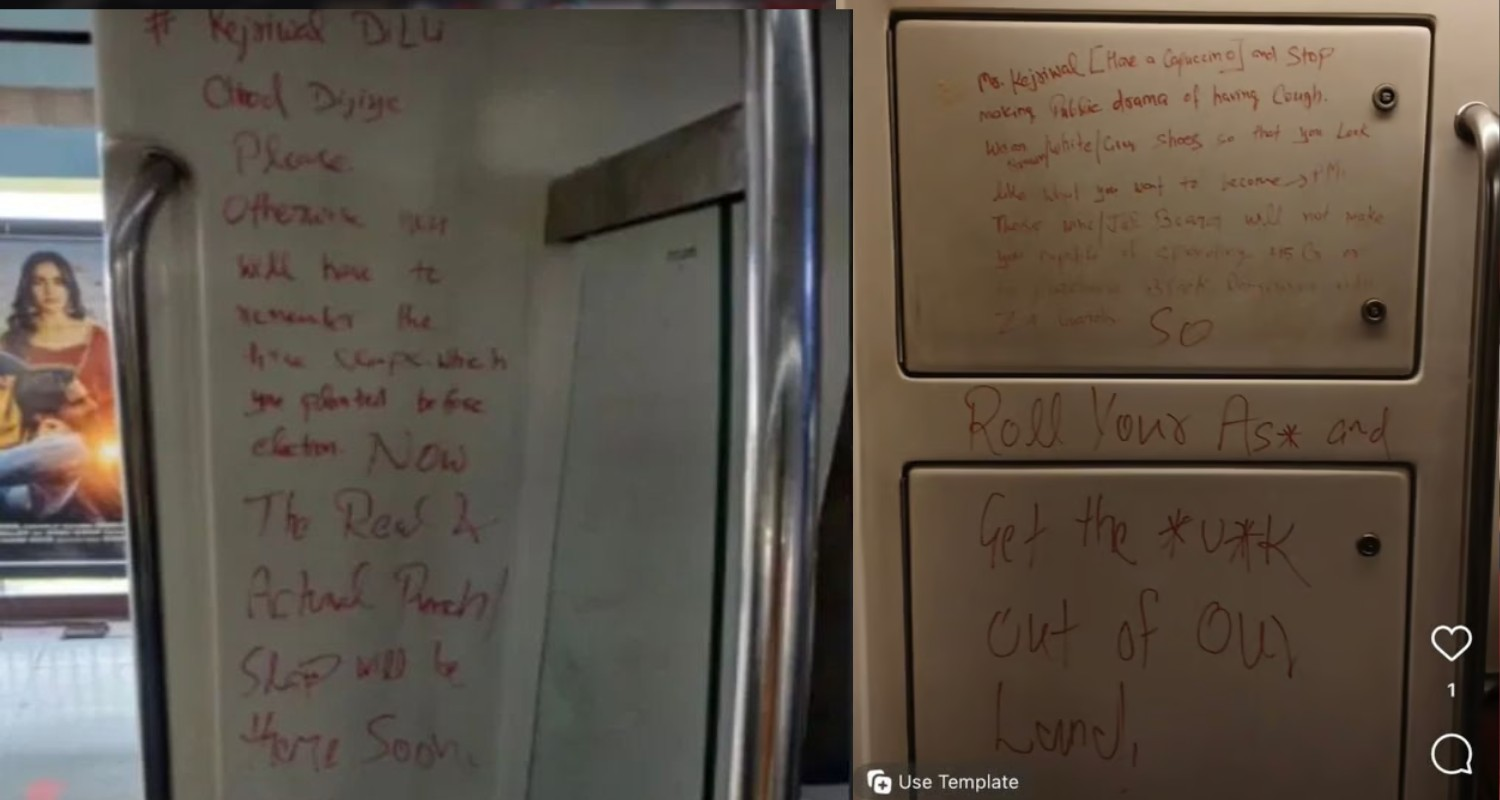 # Kejriwal DiLLi
Chod Dijiye
Please.
Otherwise you
will have to
remember the
three slaps which
you planted before
election. Now
The Real &
Actual Punch/
Slap will be
Here Soon.
Mr. Kejriwal [Have a Capuccino] and Stop
making Public drama of having Cough.
Wear /White/Grey Shoes so that you Look
like what you want to become → P.M.
These will not make
you capable of operating or
to
Z+ Guards SO
Roll Your As* and
Get the *U*K
out of OUr
Land,
1
Use Template